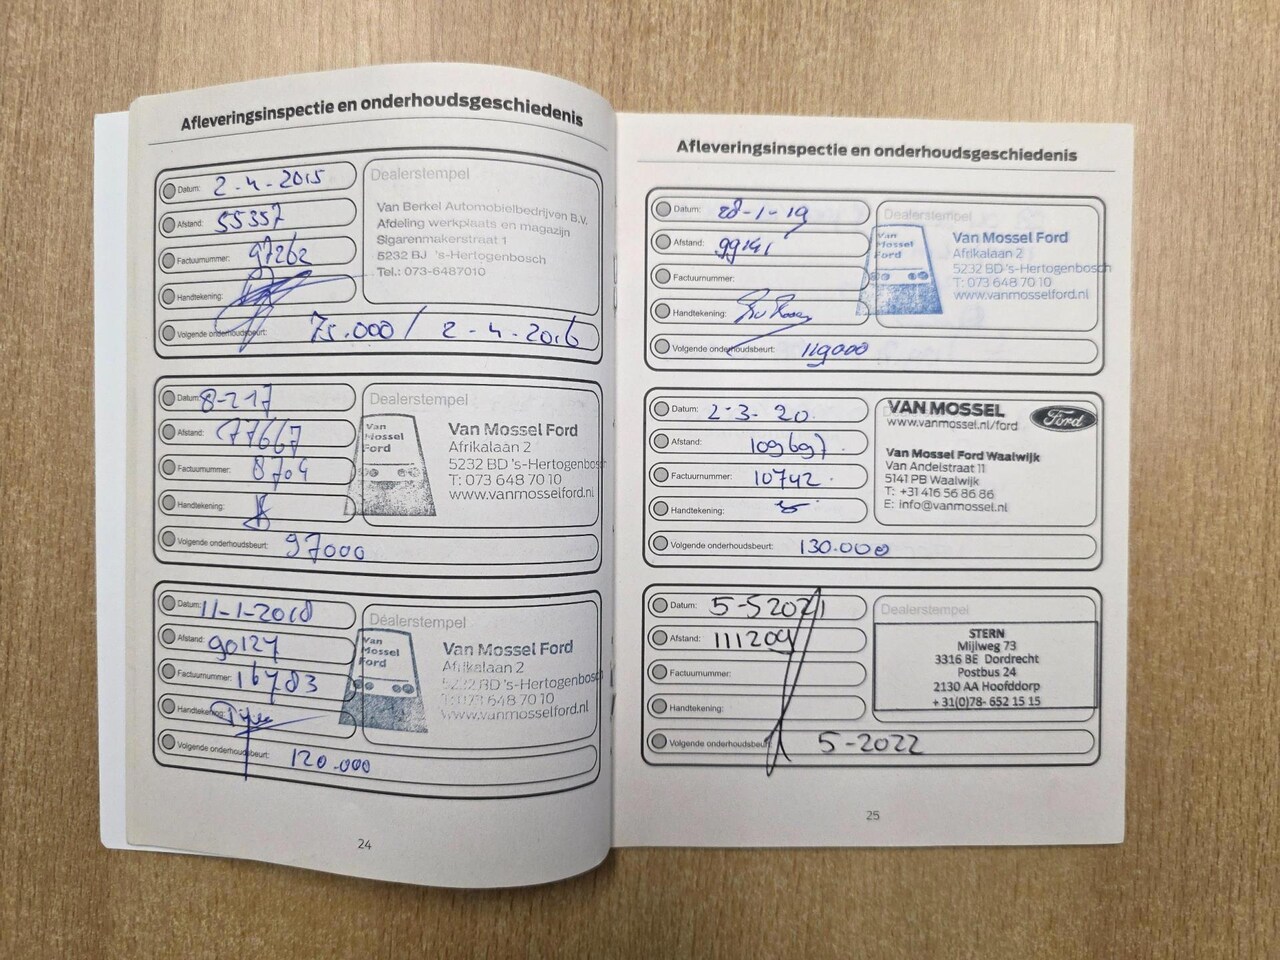 Afleveringsinspectie en onderhoudsgeschiedenis
Datum: 2-4-2015
Afstand: 55357
Factuurnummer: 97262
Handtekening:
Volgende onderhoudsbeurt: 75.000 / 2-4-2016
Dealerstempel
Van Berkel Automobielbedrijven B.V.
Afdeling werkplaats en magazijn
Sigarenmakerstraat 1
5232 BJ 's-Hertogenbosch
Tel.: 073-6487010
Datum: 8-2-17
Afstand: 77667
Factuurnummer: 8704
Handtekening:
Volgende onderhoudsbeurt: 97000
Dealerstempel
Van
Mossel
Ford
Van Mossel Ford
Afrikalaan 2
5232 BD 's-Hertogenbosch
T: 073 648 70 10
www.vanmosselford.nl
Datum: 11-1-2018
Afstand: 90127
Factuurnummer: 16783
Handtekening:
Volgende onderhoudsbeurt: 120.000
Dealerstempel
Van
Mossel
Ford
Van Mossel Ford
Afrikalaan 2
5232 BD 's-Hertogenbosch
T: 073 648 70 10
www.vanmosselford.nl
24
Afleveringsinspectie en onderhoudsgeschiedenis
Datum: 28-1-19
Afstand: 99141
Factuurnummer:
Handtekening:
Volgende onderhoudsbeurt: 119000
Dealerstempel
Van
Mossel
Ford
Van Mossel Ford
Afrikalaan 2
5232 BD 's-Hertogenbosch
T: 073 648 70 10
www.vanmosselford.nl
Datum: 2-3-20.
Afstand: 109697.
Factuurnummer: 10742.
Handtekening:
Volgende onderhoudsbeurt: 130.000
VAN MOSSEL
www.vanmossel.nl/ford
Ford
Van Mossel Ford Waalwijk
Van Andelstraat 11
5141 PB Waalwijk
T: +31 416 56 86 86
E: info@vanmossel.nl
Datum: 5-5 2021
Afstand: 111209
Factuurnummer:
Handtekening:
Volgende onderhoudsbeurt: 5-2022
Dealerstempel
STERN
Mijlweg 73
3316 BE Dordrecht
Postbus 24
2130 AA Hoofddorp
+ 31(0)78- 652 15 15
25